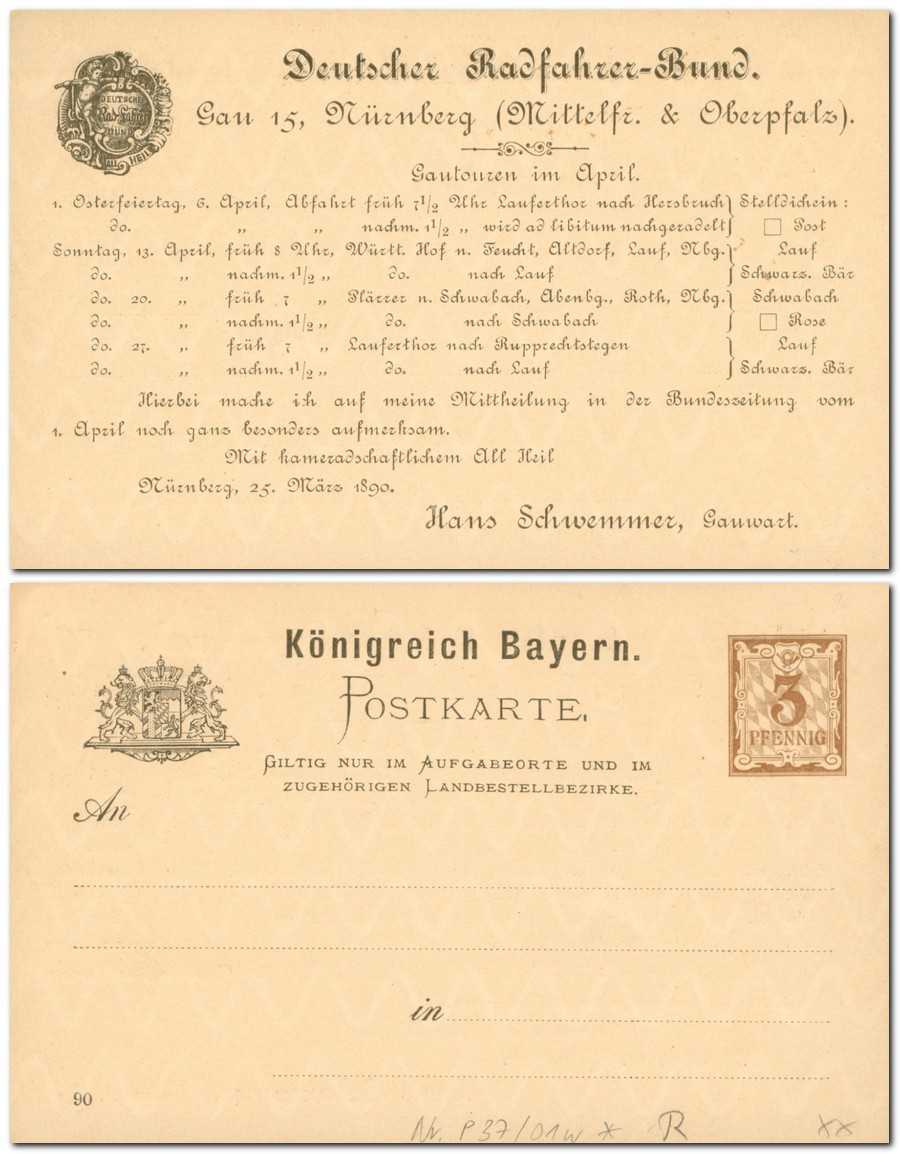 DEUTSCHER
Rad-Fahrer
BUND
ALL HEIL
Deutscher Radfahrer-Bund.
Gau 15, Nürnberg (Mittelfr. & Oberpfalz).
Gautouren im April.
1. Osterfeiertag, 6. April, Abfahrt früh 7 1/2 Uhr Lauferthor nach Hersbruck } Stelldichein:
do. „ „ nachm. 1 1/2 „ wird ad libitum nachgeradelt } □ Post
Sonntag, 13. April, früh 8 Uhr, Württ. Hof n. Feucht, Altdorf, Lauf, Nbg. } Lauf
do. „ nachm. 1 1/2 „ do. nach Lauf } Schwarz. Bär
do. 20. „ früh 7 „ Plärrer n. Schwabach, Abenbg., Roth, Nbg. } Schwabach
do. „ nachm. 1 1/2 „ do. nach Schwabach } □ Rose
do. 27. „ früh 7 „ Lauferthor nach Rupprechtstegen } Lauf
do. „ nachm. 1 1/2 „ do. nach Lauf } Schwarz. Bär
Hierbei mache ich auf meine Mittheilung in der Bundeszeitung vom
1. April noch ganz besonders aufmerksam.
Mit kameradschaftlichem All Heil
Nürnberg, 25. März 1890.
Hans Schwemmer, Gauwart.
Königreich Bayern.
POSTKARTE.
GILTIG NUR IM AUFGABEORTE UND IM
ZUGEHÖRIGEN LANDBESTELLBEZIRKE.
3
PFENNIG
An
in
90
Nr. P37/01w * R xx